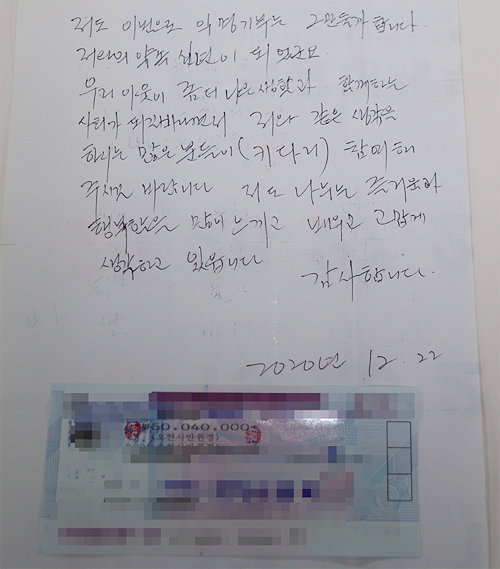 저도 이번으로 익명기부는 그만둘까 합니다.
저와의 약속 십년이 되었군요
우리 이웃이 좀 더 나은 생활과 함께하는
사회가 되길바라면서 저와 같은 생각을
하시는 많은 분들이(키다리) 함께해
주시길 바랍니다 저도 나누는 즐거움과
행복함을 많이 느끼고 배우고 고맙게
생각하고 있습니다
감사합니다.
2020년 12.22
₩50,040,000
오천사만원정)